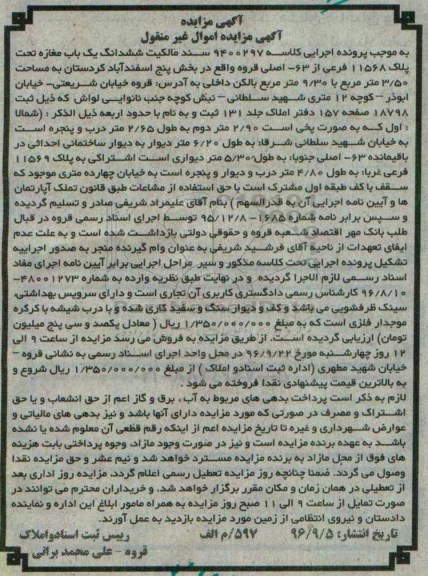 آگهی مزایده
آگهی مزایده اموال غیر منقول
به موجب پرونده اجرایی کلاسه ۹۴۰۰۲۹۷ سند مالکیت ششدانگ یک باب مغازه تحت
پلاک ۱۱۵۶۸ فرعی از ۶۳- اصلی قروه واقع در بخش پنج اسفندآباد کردستان به مساحت
۳/۵۰ متر مربع با ۹/۳۰ متر مربع بالکن داخلی به آدرس: قروه خیابان شریعتی- خیابان
ابوذر - کوچه ۱۲ متری شهید سلطانی - نبش کوچه جنب نانوایی لواش که ذیل ثبت
۱۸۷۹۸ صفحه ۱۵۷ دفتر املاک جلد ۱۳۱ ثبت و به نام با حدود اربعه ذیل الذکر : (شمالا
: اول کــه به صورت پخی است ۲/۹۰ متر دوم به طول ۲/۶۵ متر درب و پنجره است
به خیابان شهید سلطانی شرقا: به طول ۶/۲۰ متر دیوار به دیوار ساختمانی احداثی در
باقیمانده ۶۳- اصلی جنوبا: به طول ۵/۳۰ متر دیواری است اشتراکی به پلاک ۱۱۵۶۹
فرعی غربا: به طول ۴/۸۰ متر درب و دیوار و پنجره است به خیابان چهارده متری موجود که
سقف با کف طبقه اول مشترک است با حق استفاده از مشاعات طبق قانون تملک آپارتمان
ها و آیین نامه اجرایی آن به قدرالسهم ) بنام آقای علیمراد شریفی صادر و تسلیم گردیده
و سپس برابر نامه شماره ۱۶۸۵- ۹۵/۱۲/۸ توسط اجرای اسناد رسمی قروه در قبال
طلب بانک مهر اقتصاد شعبه قروه و حقوقی دولتی بازداشت شده است و به علت عدم
ایفای تعهدات از ناحیه آقای فرشید شریفی به عنوان وام گیرنده منجر به صدور اجراییه
تشکیل پرونده اجرایی تحت کلاسه مذکور و سیر مراحل اجرایی برابر آیین نامه اجرای مفاد
اسناد رسمی لازم الاجرا گردیده و در نهایت طبق نظریه وارده به شماره ۴۸۰۰۱۲۷۳-
۹۶/۸/۱۰ کارشناس رسمی دادگستری کاربری آن تجاری است و دارای سرویس بهداشتی،
سینک ظرفشویی می باشد و کف و دیوار سنگ و سفید کاری شده و با درب شیشه با کرکره
موجدار فلزی است که به مبلغ ۱/۳۵۰/۰۰۰/۰۰۰ ریال ( معادل یکصد و سی پنج میلیون
تومان) ارزیابی گردیده است. از طریق مزایده به فروش می رسد مزایده از ساعت ۹ الی
۱۲ روز چهارشنبه مورخ ۹۶/۹/۲۲ در محل واحد اجرای اسناد رسمی به نشانی قروه -
خیابان شهید مطهری (اداره ثبت اسنادو املاک ) از مبلغ ۱/۳۵۰/۰۰۰/۰۰۰ ریال شروع و
به بالاترین قیمت پیشنهادی نقدا فروخته می شود .
لازم به ذکر است پرداخت بدهی های مربوط به آب، برق و گاز اعم از حق انشعاب و یا حق
اشتراک و مصرف در صورتی که مورد مزایده دارای آنها باشد و نیز بدهی های مالیاتی و
عوارض شهرداری و غیره تا تاریخ مزایده اعم از اینکه رقم قطعی آن معلوم شده یا نشده
باشد به عهده برنده مزایده است و نیز در صورت وجود مازاد، وجوه پرداختی بابت هزینه
های فوق از محل مازاد به برنده مزایده مسترد خواهد شد و نیم عشر و حق مزایده نقدا
وصول می گردد. ضمنا چنانچه روز مزایده تعطیل رسمی اعلام گردد، مزایده روز اداری بعد
از تعطیلی در همان زمان و مکان مقرر برگزار خواهد شد. و خریداران محترم می توانند در
صورت تمایل از ساعت ۹ الی ۱۱ صبح روز مزایده به همراه مامور ابلاغ این اداره و نماینده
دادستان و نیروی انتظامی از زمین مورد مزایده بازدید به عمل آورند.
تاریخ انتشار: ۹۶/۹/۵ ۵۹۷/م الف رییس ثبت اسنادواملاک
قروه - علی محمد براتی